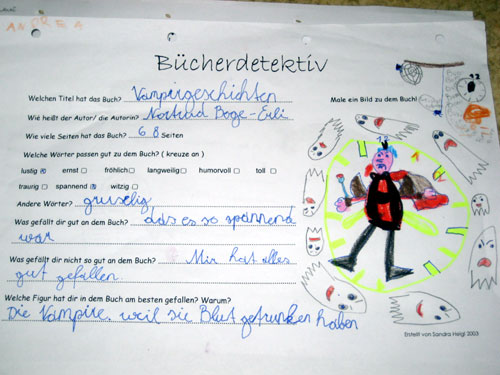 ANDREA
Bücherdetektiv
Welchen Titel hat das Buch? Vampirgeschichten
Male ein Bild zu dem Buch!
Wie heißt der Autor/ die Autorin? Nortrud Boge-Erli
Wie viele Seiten hat das Buch? 68 Seiten
Welche Wörter passen gut zu dem Buch? ( kreuze an )
lustig ernst fröhlich langweilig humorvoll toll
traurig spannend witzig
Andere Wörter? gruselig
Was gefällt dir gut an dem Buch? das es so spannend
war
Was gefällt dir nicht so gut an dem Buch? Mir hat alles
gut gefallen.
Welche Figur hat dir in dem Buch am besten gefallen? Warum?
Die Vampire, weil sie Blut getrunken haben
12
12
Erstellt von Sandra Helgl 2003